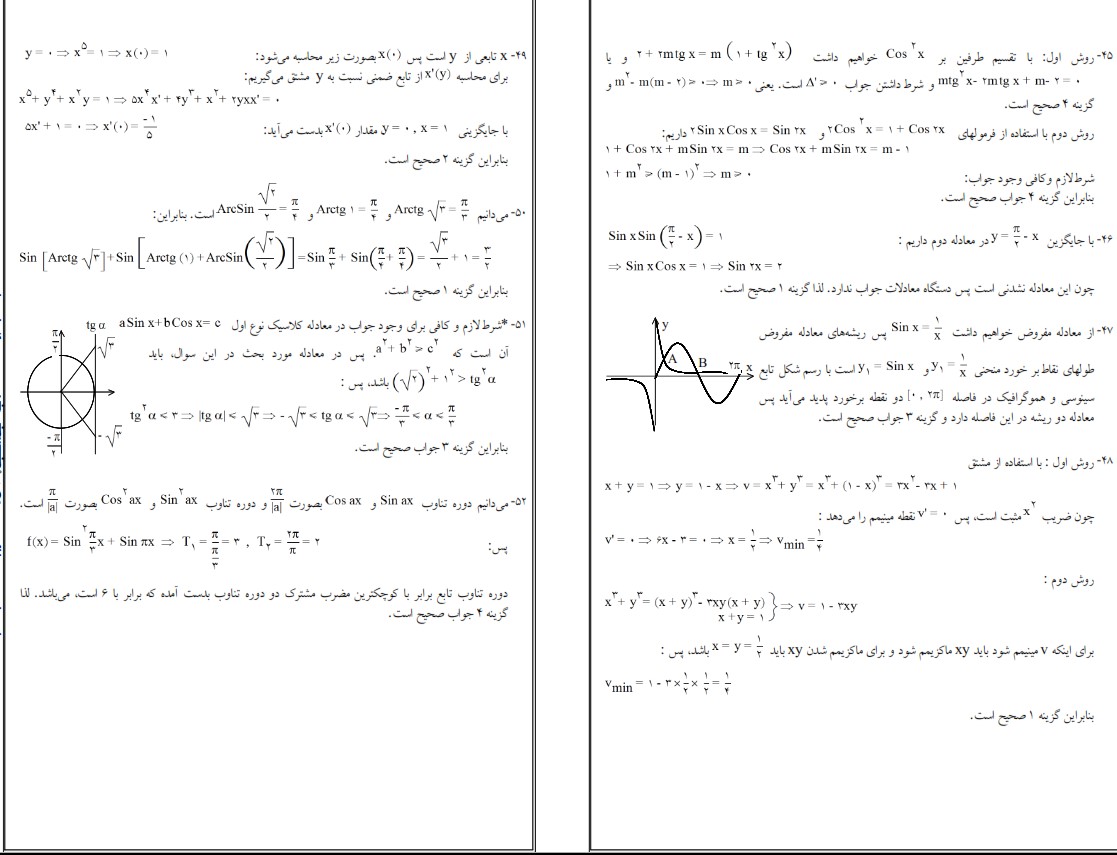 ۴۵- روش اول: با تقسیم طرفین بر Cos^۲ x خواهیم داشت ۲ + ۲mtg x = m (۱ + tg^۲ x) و یا
mtg^۲ x - ۲mtg x + m - ۲ = ۰ و شرط داشتن جواب Δ' ≥ ۰ است. یعنی m^۲ - m(m - ۲) ≥ ۰ ⇒ m ≥ ۰ و
گزینه ۴ صحیح است.
روش دوم با استفاده از فرمولهای ۲Cos^۲ x = ۱ + Cos ۲x و ۲Sin x Cos x = Sin ۲x داریم:
۱ + Cos ۲x + mSin ۲x = m ⇒ Cos ۲x + mSin ۲x = m - ۱
شرط لازم وکافی وجود جواب: ۱ + m^۲ ≥ (m - ۱)^۲ ⇒ m ≥ ۰
بنابراین گزینه ۴ جواب صحیح است.
۴۶- با جایگزین y = π/۲ - x در معادله دوم داریم : Sin x Sin (π/۲ - x) = ۱
⇒ Sin x Cos x = ۱ ⇒ Sin ۲x = ۲
چون این معادله نشدنی است پس دستگاه معادلات جواب ندارد. لذا گزینه ۱ صحیح است.
۴۷- از معادله مفروض خواهیم داشت Sin x = ۱/x پس ریشه‌های معادله مفروض
طولهای نقاط بر خورد منحنی y₁ = ۱/x و y₁ = Sin x است با رسم شکل تابع
سینوسی و هموگرافیک در فاصله [۰ , ۲π] دو نقطه برخورد پدید می‌آید پس
معادله دو ریشه در این فاصله دارد و گزینه ۳ جواب صحیح است.
y
A
B
۲π
x
۴۸- روش اول : با استفاده از مشتق
x + y = ۱ ⇒ y = ۱ - x ⇒ v = x^۳ + y^۳ = x^۳ + (۱ - x)^۳ = ۳x^۲ - ۳x + ۱
چون ضریب x^۲ مثبت است، پس v' = ۰ نقطه مینیمم را می‌دهد :
v' = ۰ ⇒ ۶x - ۳ = ۰ ⇒ x = ۱/۲ ⇒ v_min = ۱/۴
روش دوم :
x^۳ + y^۳ = (x + y)^۳ - ۳xy(x + y)
x + y = ۱ } ⇒ v = ۱ - ۳xy
برای اینکه v مینیمم شود باید xy ماکزیمم شود و برای ماکزیمم شدن xy باید x = y = ۱/۲ باشد، پس :
v_min = ۱ - ۳ × ۱/۲ × ۱/۲ = ۱/۴
بنابراین گزینه ۱ صحیح است.
۴۹- x تابعی از y است پس x(۰) بصورت زیر محاسبه می‌شود: y = ۰ ⇒ x^۵ = ۱ ⇒ x(۰) = ۱
برای محاسبه x'(y) از تابع ضمنی نسبت به y مشتق می‌گیریم:
x^۵ + y^۴ + x^۲ y = ۱ ⇒ ۵x^۴ x' + ۴y^۳ + x^۲ + ۲yxx' = ۰
با جایگزینی y = ۰ , x = ۱ مقدار x'(۰) بدست می‌آید: ۵x' + ۱ = ۰ ⇒ x'(۰) = -۱/۵
بنابراین گزینه ۲ صحیح است.
۵۰- می‌دانیم Arctg √۳ = π/۳ و Arctg ۱ = π/۴ و ArcSin √۲/۲ = π/۴ است. بنابراین:
Sin [Arctg √۳] + Sin [Arctg (۱) + ArcSin(√۲/۲)] = Sin π/۳ + Sin(π/۴ + π/۴) = √۳/۲ + ۱ = ۳/۲
بنابراین گزینه ۱ صحیح است.
۵۱- *شرط لازم و کافی برای وجود جواب در معادله کلاسیک نوع اول aSin x + bCos x = c
آن است که a^۲ + b^۲ ≥ c^۲. پس در معادله مورد بحث در این سوال، باید
(√۲)^۲ + ۱^۲ > tg^۲ α باشد، پس :
tg^۲ α < ۳ ⇒ |tg α| < √۳ ⇒ -√۳ < tg α < √۳ ⇒ -π/۳ < α < π/۳
بنابراین گزینه ۳ جواب صحیح است.
tg α
π/۲
√۳
-√۳
-π/۲
۵۲- می‌دانیم دوره تناوب Sin ax و Cos ax بصورت ۲π/|a| و دوره تناوب Sin^۲ ax و Cos^۲ ax بصورت π/|a| است.
پس: f(x) = Sin^۲ π/۳ x + Sin πx ⇒ T₁ = π/(π/۳) = ۳ , T₂ = ۲π/π = ۲
دوره تناوب تابع برابر با کوچکترین مضرب مشترک دو دوره تناوب بدست آمده که برابر با ۶ است، می‌باشد. لذا
گزینه ۴ جواب صحیح است.